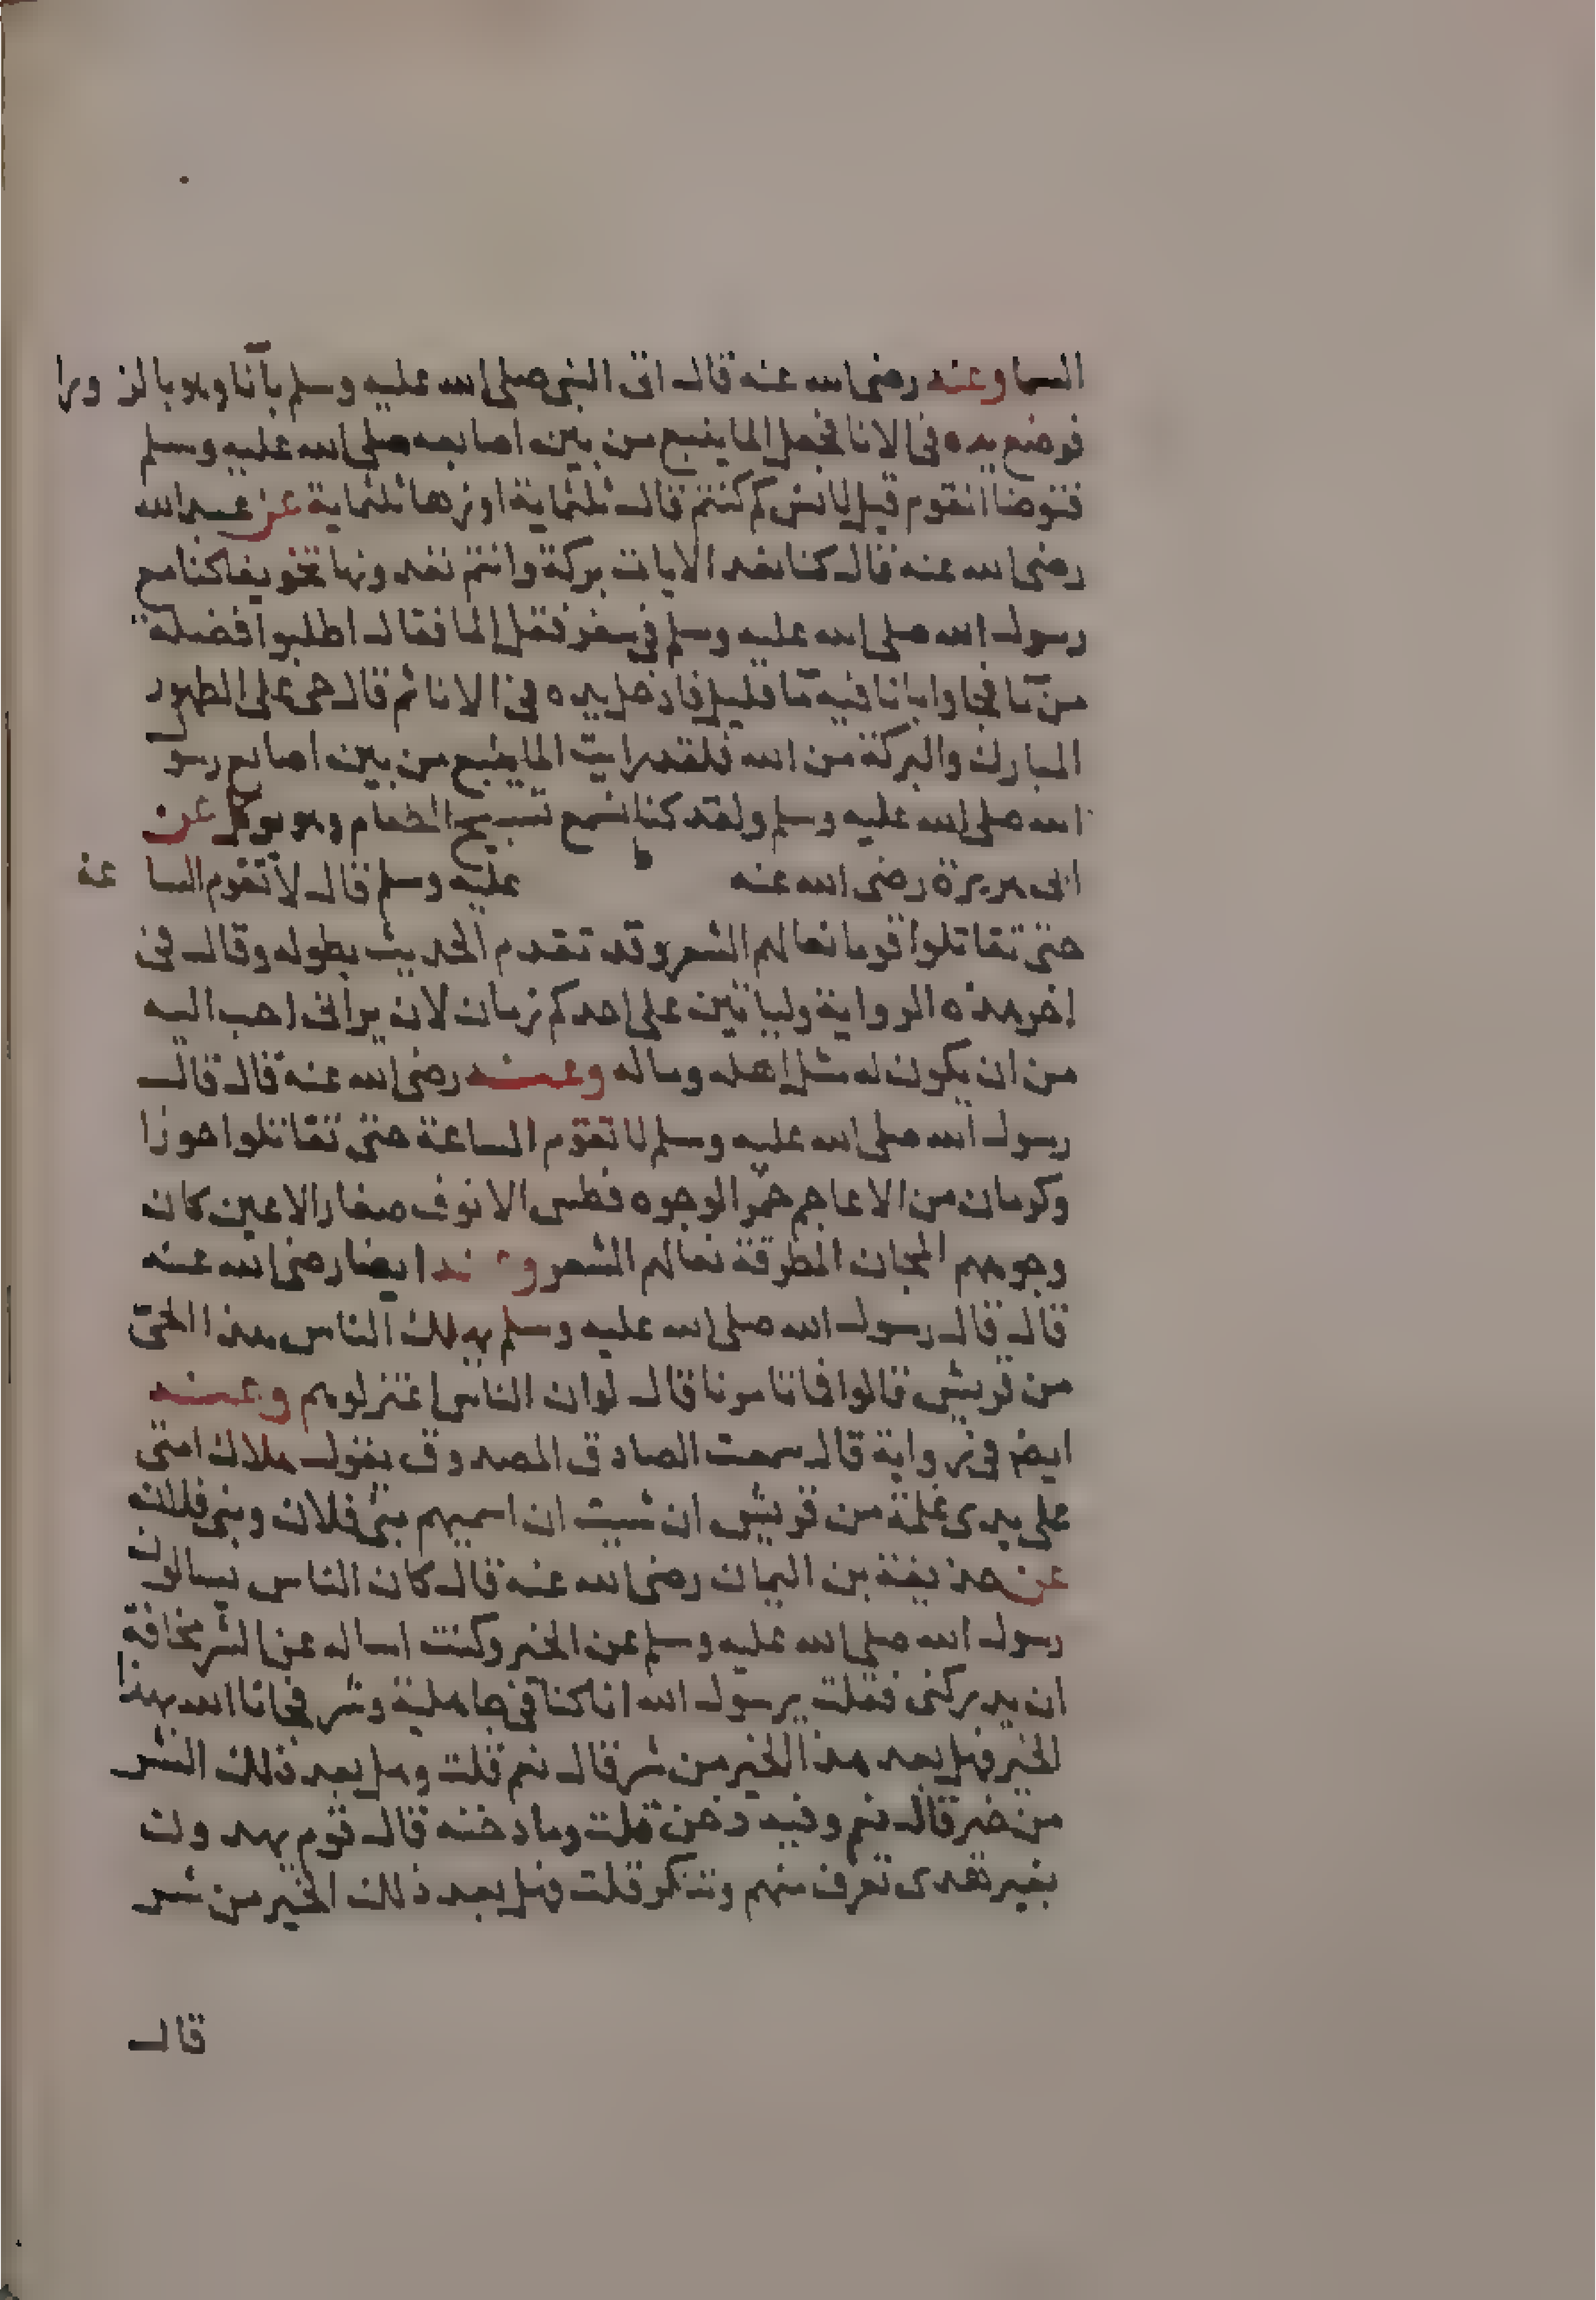 السما وعنه رضى الله عنه قال اتى النبى صلى الله عليه وسلم بآنا وهو بالزورا
فوضع يده فى الانا فجعل الما ينبع من بين اصابعه صلى الله عليه وسلم
فتوضا القوم قيل لانس كم كنتم قال ثلثماية او زها ثلثماية عن عبد الله
رضى الله عنه قال كنا نعد الايات بركة وانتم تعدونها تخويفا كنا مع
رسول الله صلى الله عليه وسلم فى سفر فقل الما فقال اطلبوا فضلة
من مآ فجاوا بانا فيه مآ قليل فادخل يده فى الانا ثم قال حى على الطهور
المبارك والبركة من الله فلقد رايت الما ينبع من بين اصابع رسو
الله صلى الله عليه وسلم ولقد كنا نسمع تسبيح الطعام وهو يوكل عن
ابى هريرة رضى الله عنه عليه وسلم قال لا تقوم السا عة
حتى تقاتلوا قوما نعالهم الشعر وقد تقدم الحديث بطوله وقال فى
اخر هذه الرواية ولياتين على احدكم زمان لان يرانى احب اليه
من ان يكون له مثل اهله وماله وعنه رضى الله عنه قال قال
رسول الله صلى الله عليه وسلم لا تقوم الساعة حتى تقاتلوا خوزا
وكرمان من الاعاجم حمر الوجوه فطس الانوف صغار الاعين كان
وجوههم المجان المطرقة نعالهم الشعر وعنه ايضا رضى الله عنه
قال قال رسول الله صلى الله عليه وسلم يهلك الناس هذا الحى
من قريش قالوا فما تامرنا قال لو ان الناس اعتزلوهم وعنه
ايضا فى رواية قال سمعت الصادق المصدوق يقول هلاك امتى
على يدى غلمة من قريش ان شيت ان اسميهم بنى فلان وبنى فلان
عن حذيفة بن اليمان رضى الله عنه قال كان الناس يسالون
رسول الله صلى الله عليه وسلم عن الخير وكنت اساله عن الشر مخافة
ان يدركنى فقلت يرسول الله انا كنا فى جاهلية وشر فجانا الله بهذا
الخير فهل بعد هذا الخير من شر قال نعم قلت وهل بعد ذلك الشر
من خير قال نعم وفيه دخن قلت وما دخنه قال قوم يهدون
بغير هدى تعرف منهم وتنكر قلت فهل بعد ذلك الخير من شر
قال